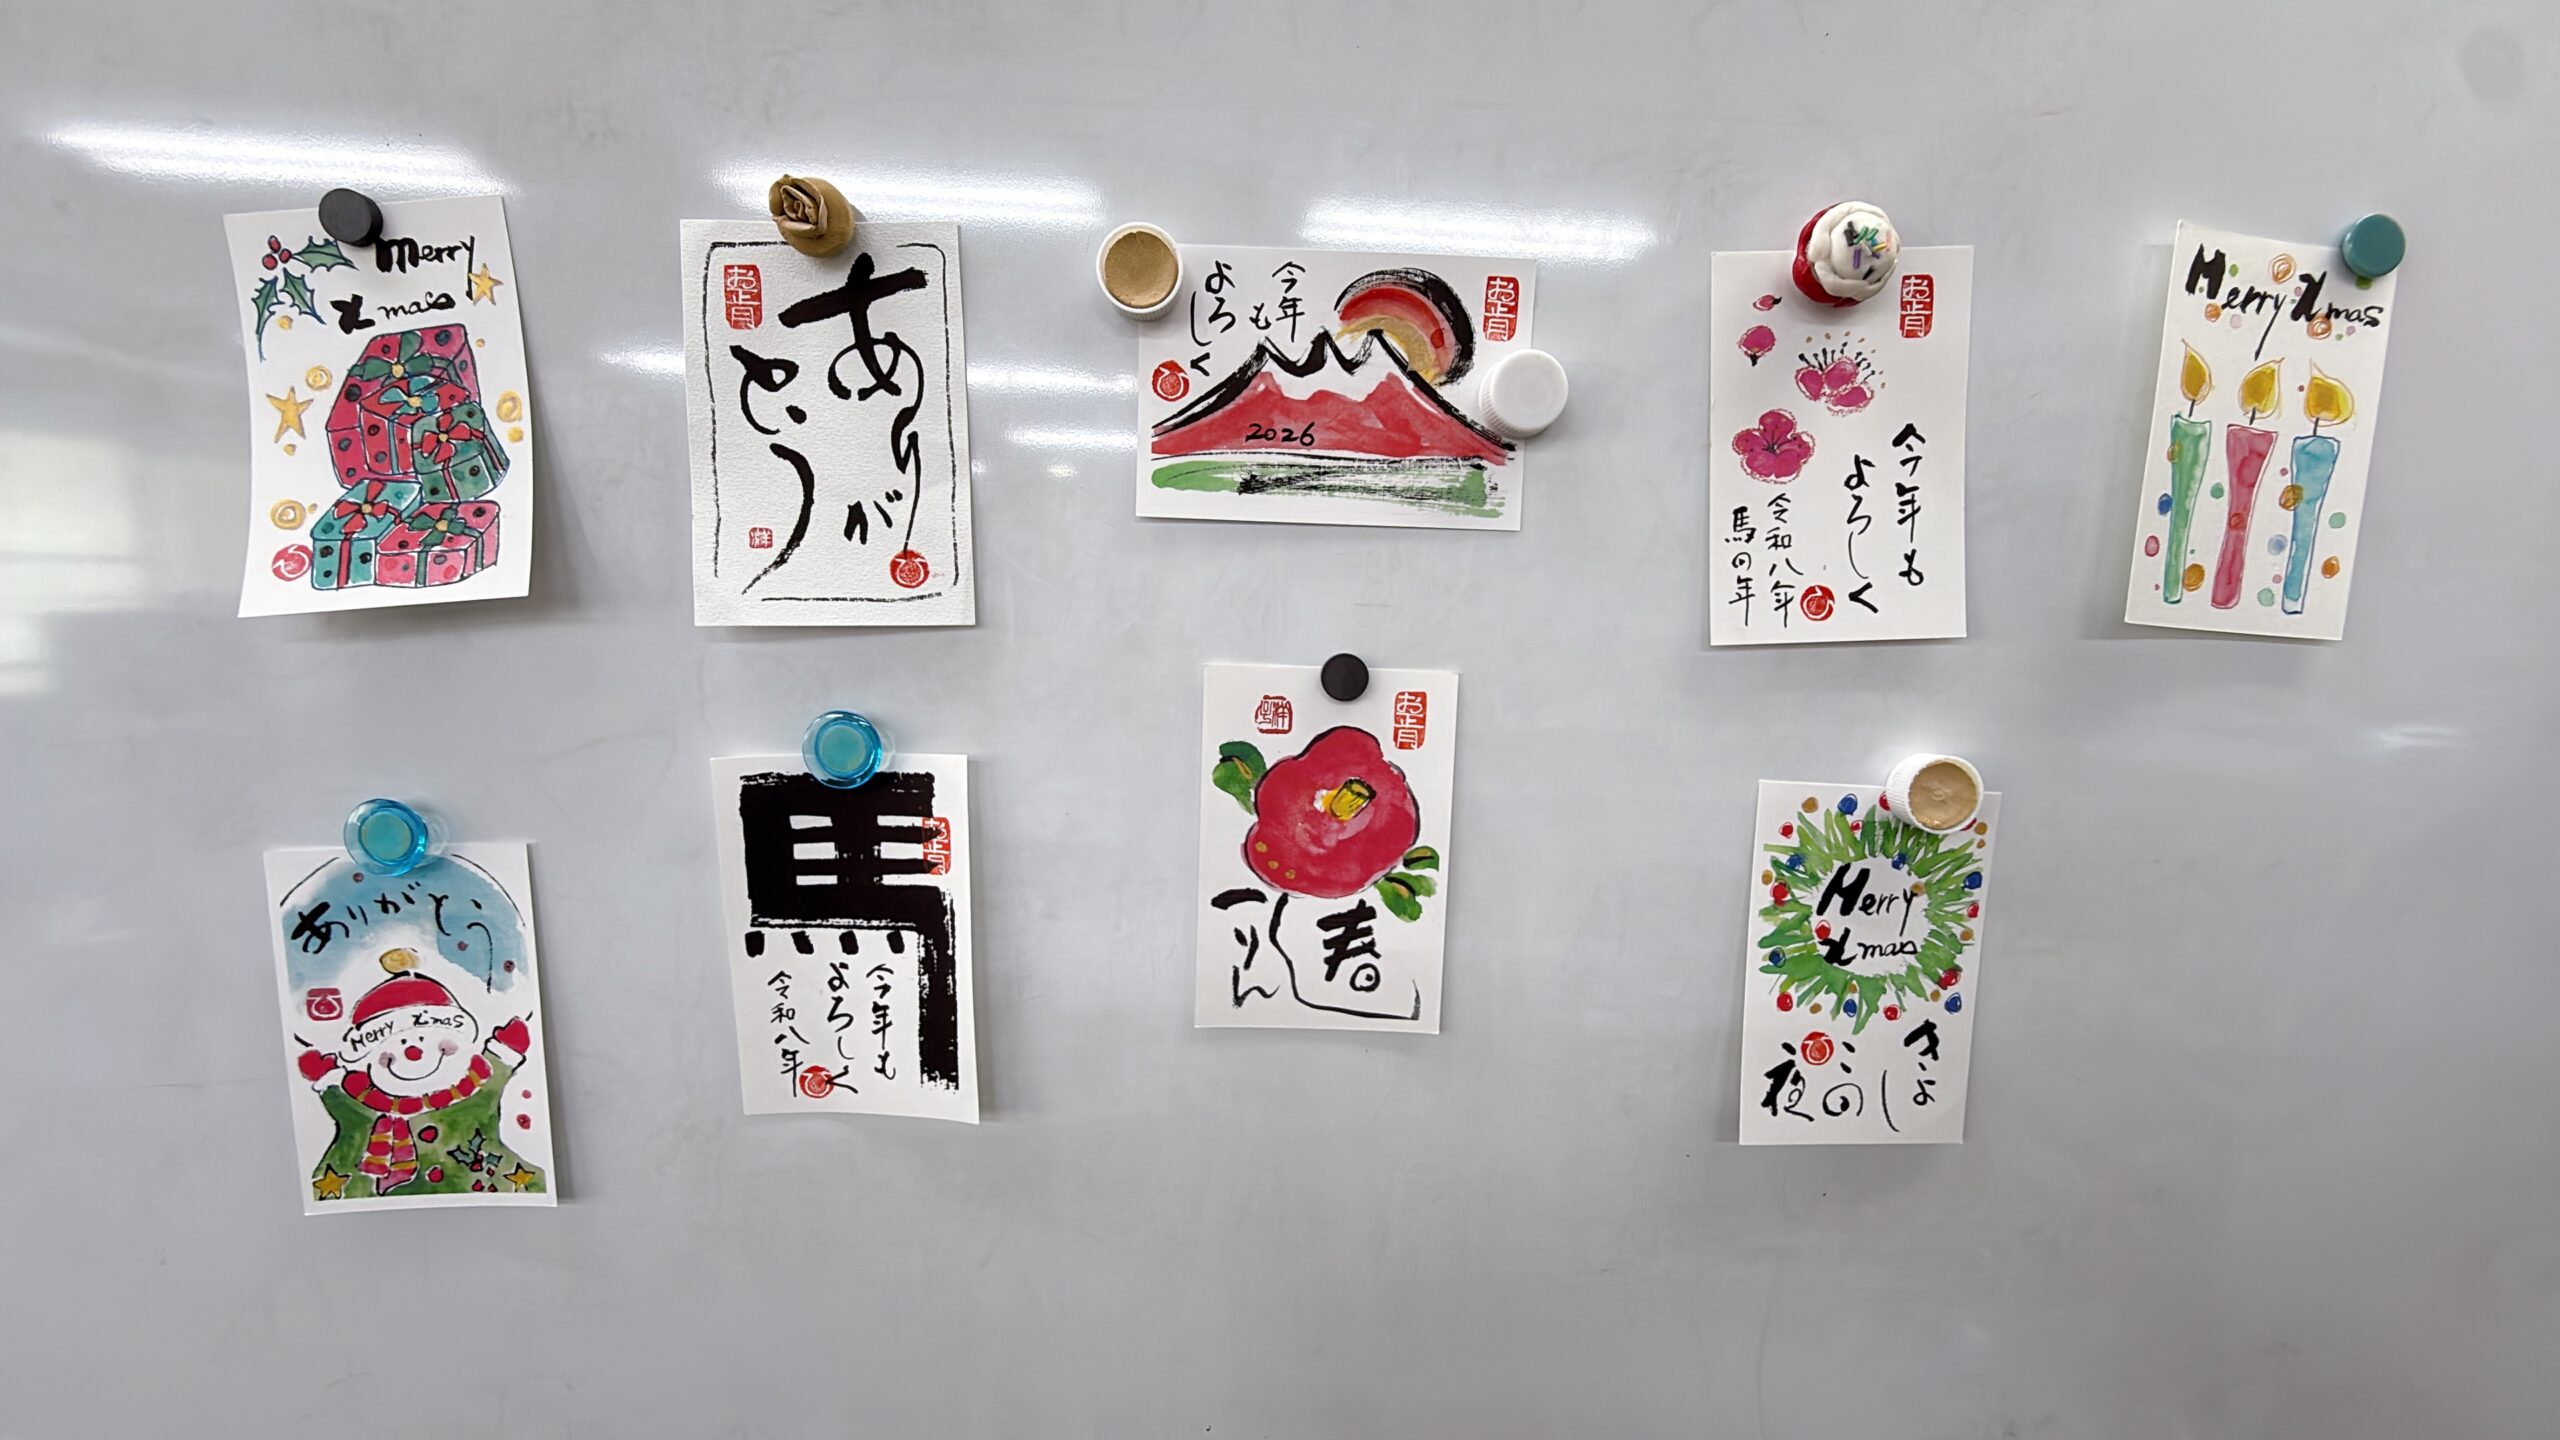 Merry
Xmas
お正月
あり
が
とう
洋
今年
も
よろしく
お正月
2026
お正月
今年も
よろしく
令和八年
馬の年
Merry Xmas
ありがとう
Merry X'mas
馬
お正月
今年も
よろしく
令和八年
お正月
春
一りん
Merry
Xmas
きよ
し
この
夜